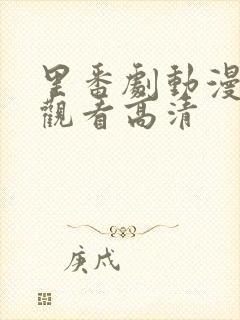 里番劇動漫
觀看高清
庚戍